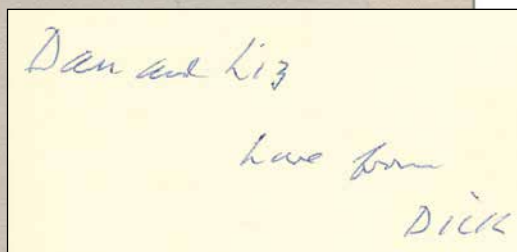 Dan and Liz
love from
Dick